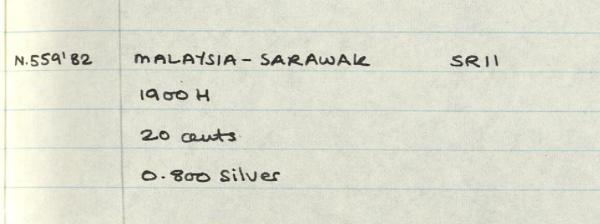 N.559'82 MALAYSIA - SARAWAK SR11
1900 H
20 cents
0.800 Silver